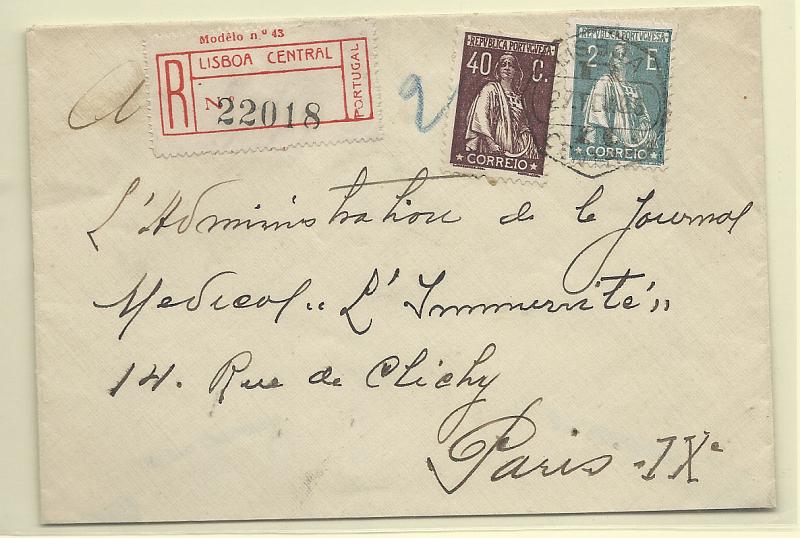 Modêlo n.º 43
LISBOA CENTRAL
R
Nº 22018
PORTUGAL
REPUBLICA PORTUGUESA
40 C.
CORREIO
REPUBLICA PORTUGUESA
2 E
CORREIO
LISBOA
L'Administration de le Journal
Medical „L'Immunité"
14. Rue de Clichy
Paris-IXe